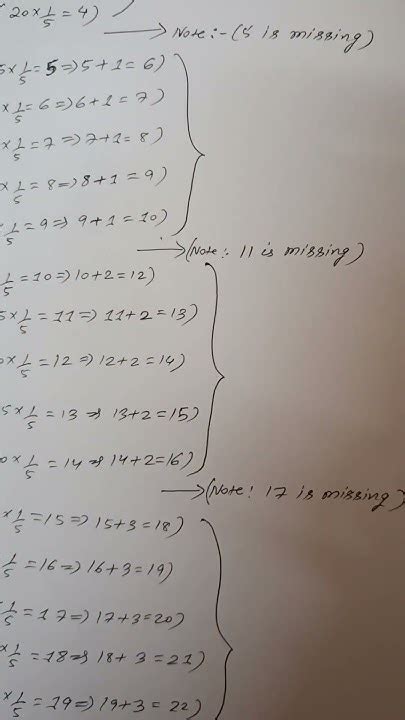 20 × 1/5 = 4)
→ Note :- (5 is missing)
5 × 1/5 = 5 => 5 + 1 = 6)
× 1/5 = 6 => 6 + 1 = 7)
× 1/5 = 7 => 7 + 1 = 8)
× 1/5 = 8 => 8 + 1 = 9)
1/5 = 9 => 9 + 1 = 10)
→ (Note :- 11 is missing)
1/5 = 10 => 10 + 2 = 12)
5 × 1/5 = 11 => 11 + 2 = 13)
0 × 1/5 = 12 => 12 + 2 = 14)
5 × 1/5 = 13 => 13 + 2 = 15)
0 × 1/5 = 14 => 14 + 2 = 16)
→ (Note : 17 is missing)
× 1/5 = 15 => 15 + 3 = 18)
1/5 = 16 => 16 + 3 = 19)
1/5 = 17 => 17 + 3 = 20)
× 1/5 = 18 => 18 + 3 = 21)
× 1/5 = 19 => 19 + 3 = 22)